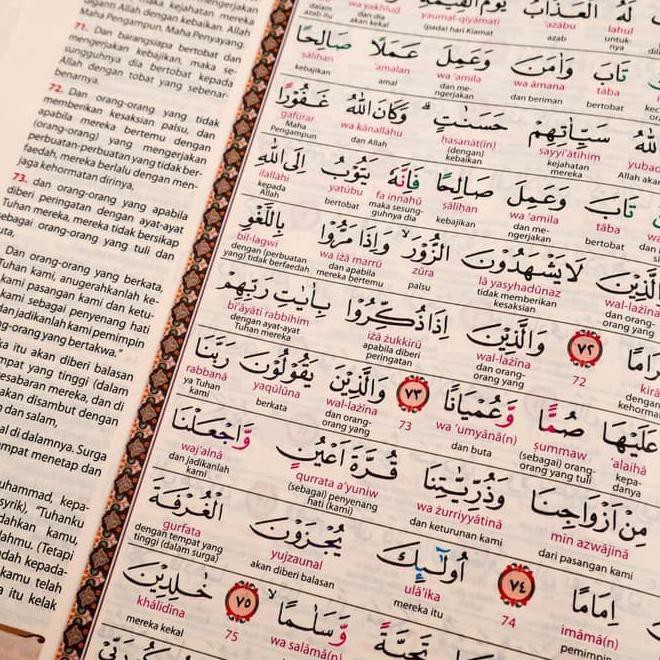 maka kejahatan mereka
diganti Allah dengan kebaikan. Allah
Maha Pengampun, Maha Penyayang.
71. Dan barangsiapa bertobat dan
mengerjakan kebajikan, maka se-
sungguhnya dia bertobat kepada
Allah dengan tobat yang sebenar-
benarnya.
72. Dan orang-orang yang tidak
memberikan kesaksian palsu, dan
apabila mereka bertemu dengan
(orang-orang) yang mengerjakan
perbuatan-perbuatan yang tidak ber-
faedah, mereka berlalu dengan men-
jaga kehormatan dirinya,
73. dan orang-orang yang apabila
diberi peringatan dengan ayat-ayat
Tuhan mereka, mereka tidak bersikap
sebagai orang-orang yang tuli dan
Dan orang-orang yang berkata,
Tuhan kami, anugerahkanlah ke-
kami pasangan kami dan ketu-
kami sebagai penyenang hati
dan jadikanlah kami pemimpin
g-orang yang bertakwa."
ka itu akan diberi balasan
mpat yang tinggi (dalam
esabaran mereka, dan di
akan disambut dengan
dan salam,
al di dalamnya. Surga
empat menetap dan
uhammad, kepa-
syrik), "Tuhanku
dahkan kamu,
lahmu. (Tetapi
dah kepada-
kamu telah
a itu kelak
لَهُ الْعَذَابُ يَوْمَ الْقِيٰمَةِ
lahul 'ażābu yaumal-qiyāmati wa yakhlud
azab (pada) hari Kiamat dan dia akan kekal
تَابَ وَاٰمَنَ وَعَمِلَ عَمَلًا صَالِحًا
tāba wa āmana wa 'amila 'amalan ṣāliḥan
bertobat dan beriman dan me-ngerjakan amal kebajikan
اللّٰهُ سَيِّاٰتِهِمْ حَسَنٰتٍ ۗ وَكَانَ اللّٰهُ غَفُوْرًا
sayyi'ātihim ḥasanāt(in) wa kānallāhu gafūrar
kejahatan mereka (dengan) kebaikan dan Allah Maha Pengampun
تَابَ وَعَمِلَ صَالِحًا فَاِنَّهٗ يَتُوْبُ اِلَى اللّٰهِ
tāba wa 'amila ṣāliḥan fa innahū yatūbu ilallāhi
bertobat dan me-ngerjakan kebajikan maka sesung-guhnya dia bertobat kepada Allah
الَّذِيْنَ لَا يَشْهَدُوْنَ الزُّوْرَۙ وَاِذَا مَرُّوْا بِاللَّغْوِ
wal-lażīna lā yasyhadūnaz zūra wa iżā marrū bil-lagwi
dan orang-orang yang tidak memberikan kesaksian palsu dan apabila mereka bertemu dengan (perbuatan yang) tidak berfaedah,
رَامًا ٧٢ وَالَّذِيْنَ اِذَا ذُكِّرُوْا بِاٰيٰتِ رَبِّهِمْ
72 wal-lażīna iżā żukkirū bi'āyāti rabbihim
dan orang-orang yang apabila diberi peringatan dengan ayat-ayat Tuhan mereka
عَلَيْهَا صُمًّا وَّعُمْيَانًا ٧٣ وَالَّذِيْنَ يَقُوْلُوْنَ رَبَّنَا
'alaihā ṣummaw wa 'umyānā(n) 73 wal-lażīna yaqūlūna rabbanā
kepa-danya (sebagai) orang-orang yang tuli dan buta dan orang-orang yang berkata ya Tuhan kami
مِنْ اَزْوَاجِنَا وَذُرِّيّٰتِنَا قُرَّةَ اَعْيُنٍ وَّاجْعَلْنَا
min azwājinā wa żurriyyātinā qurrata a'yuniw waj'alnā
dari pasangan kami dan keturunan kami (sebagai) penyenang hati (kami) dan jadikanlah kami
اِمَامًا ٧٤ اُولٰۤىِٕكَ يُجْزَوْنَ الْغُرْفَةَ
imāmā(n) 74 ulā'ika yujzaunal gurfata
pemimpin mereka itu akan diberi balasan dengan tempat yang tinggi (dalam surga)
تَحِيَّةً وَّسَلٰمًاۙ ٧٥ خٰلِدِيْنَ
wa salāmā(n) 75 khālidīna
mereka kekal